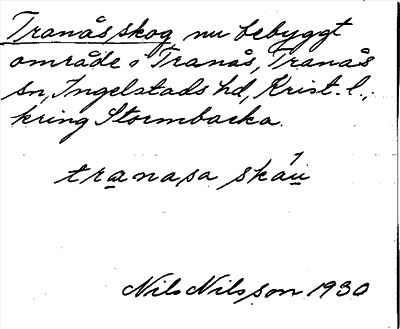 Tranåsskog nu bebyggt
område i Tranås, Tranås
sn, Ingelstads hd, Krist. l.,
kring Stormbacka.
tranasa skáu
Nils Nilsson 1930